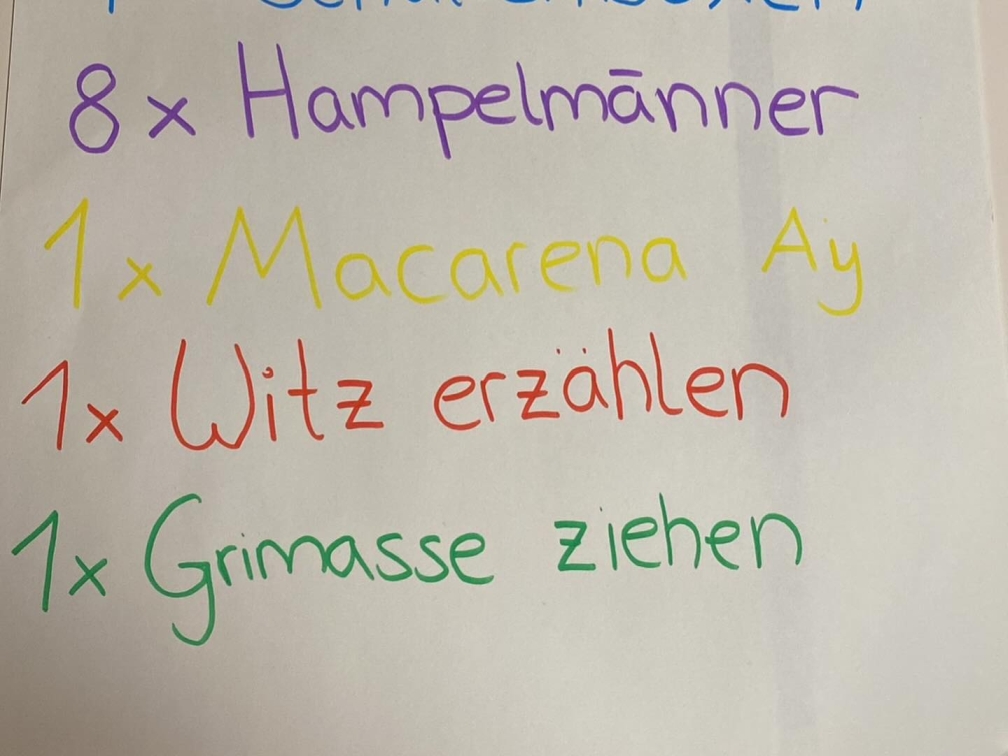 8x Hampelmänner
1x Macarena Ay
1x Witz erzählen
1x Grimasse ziehen